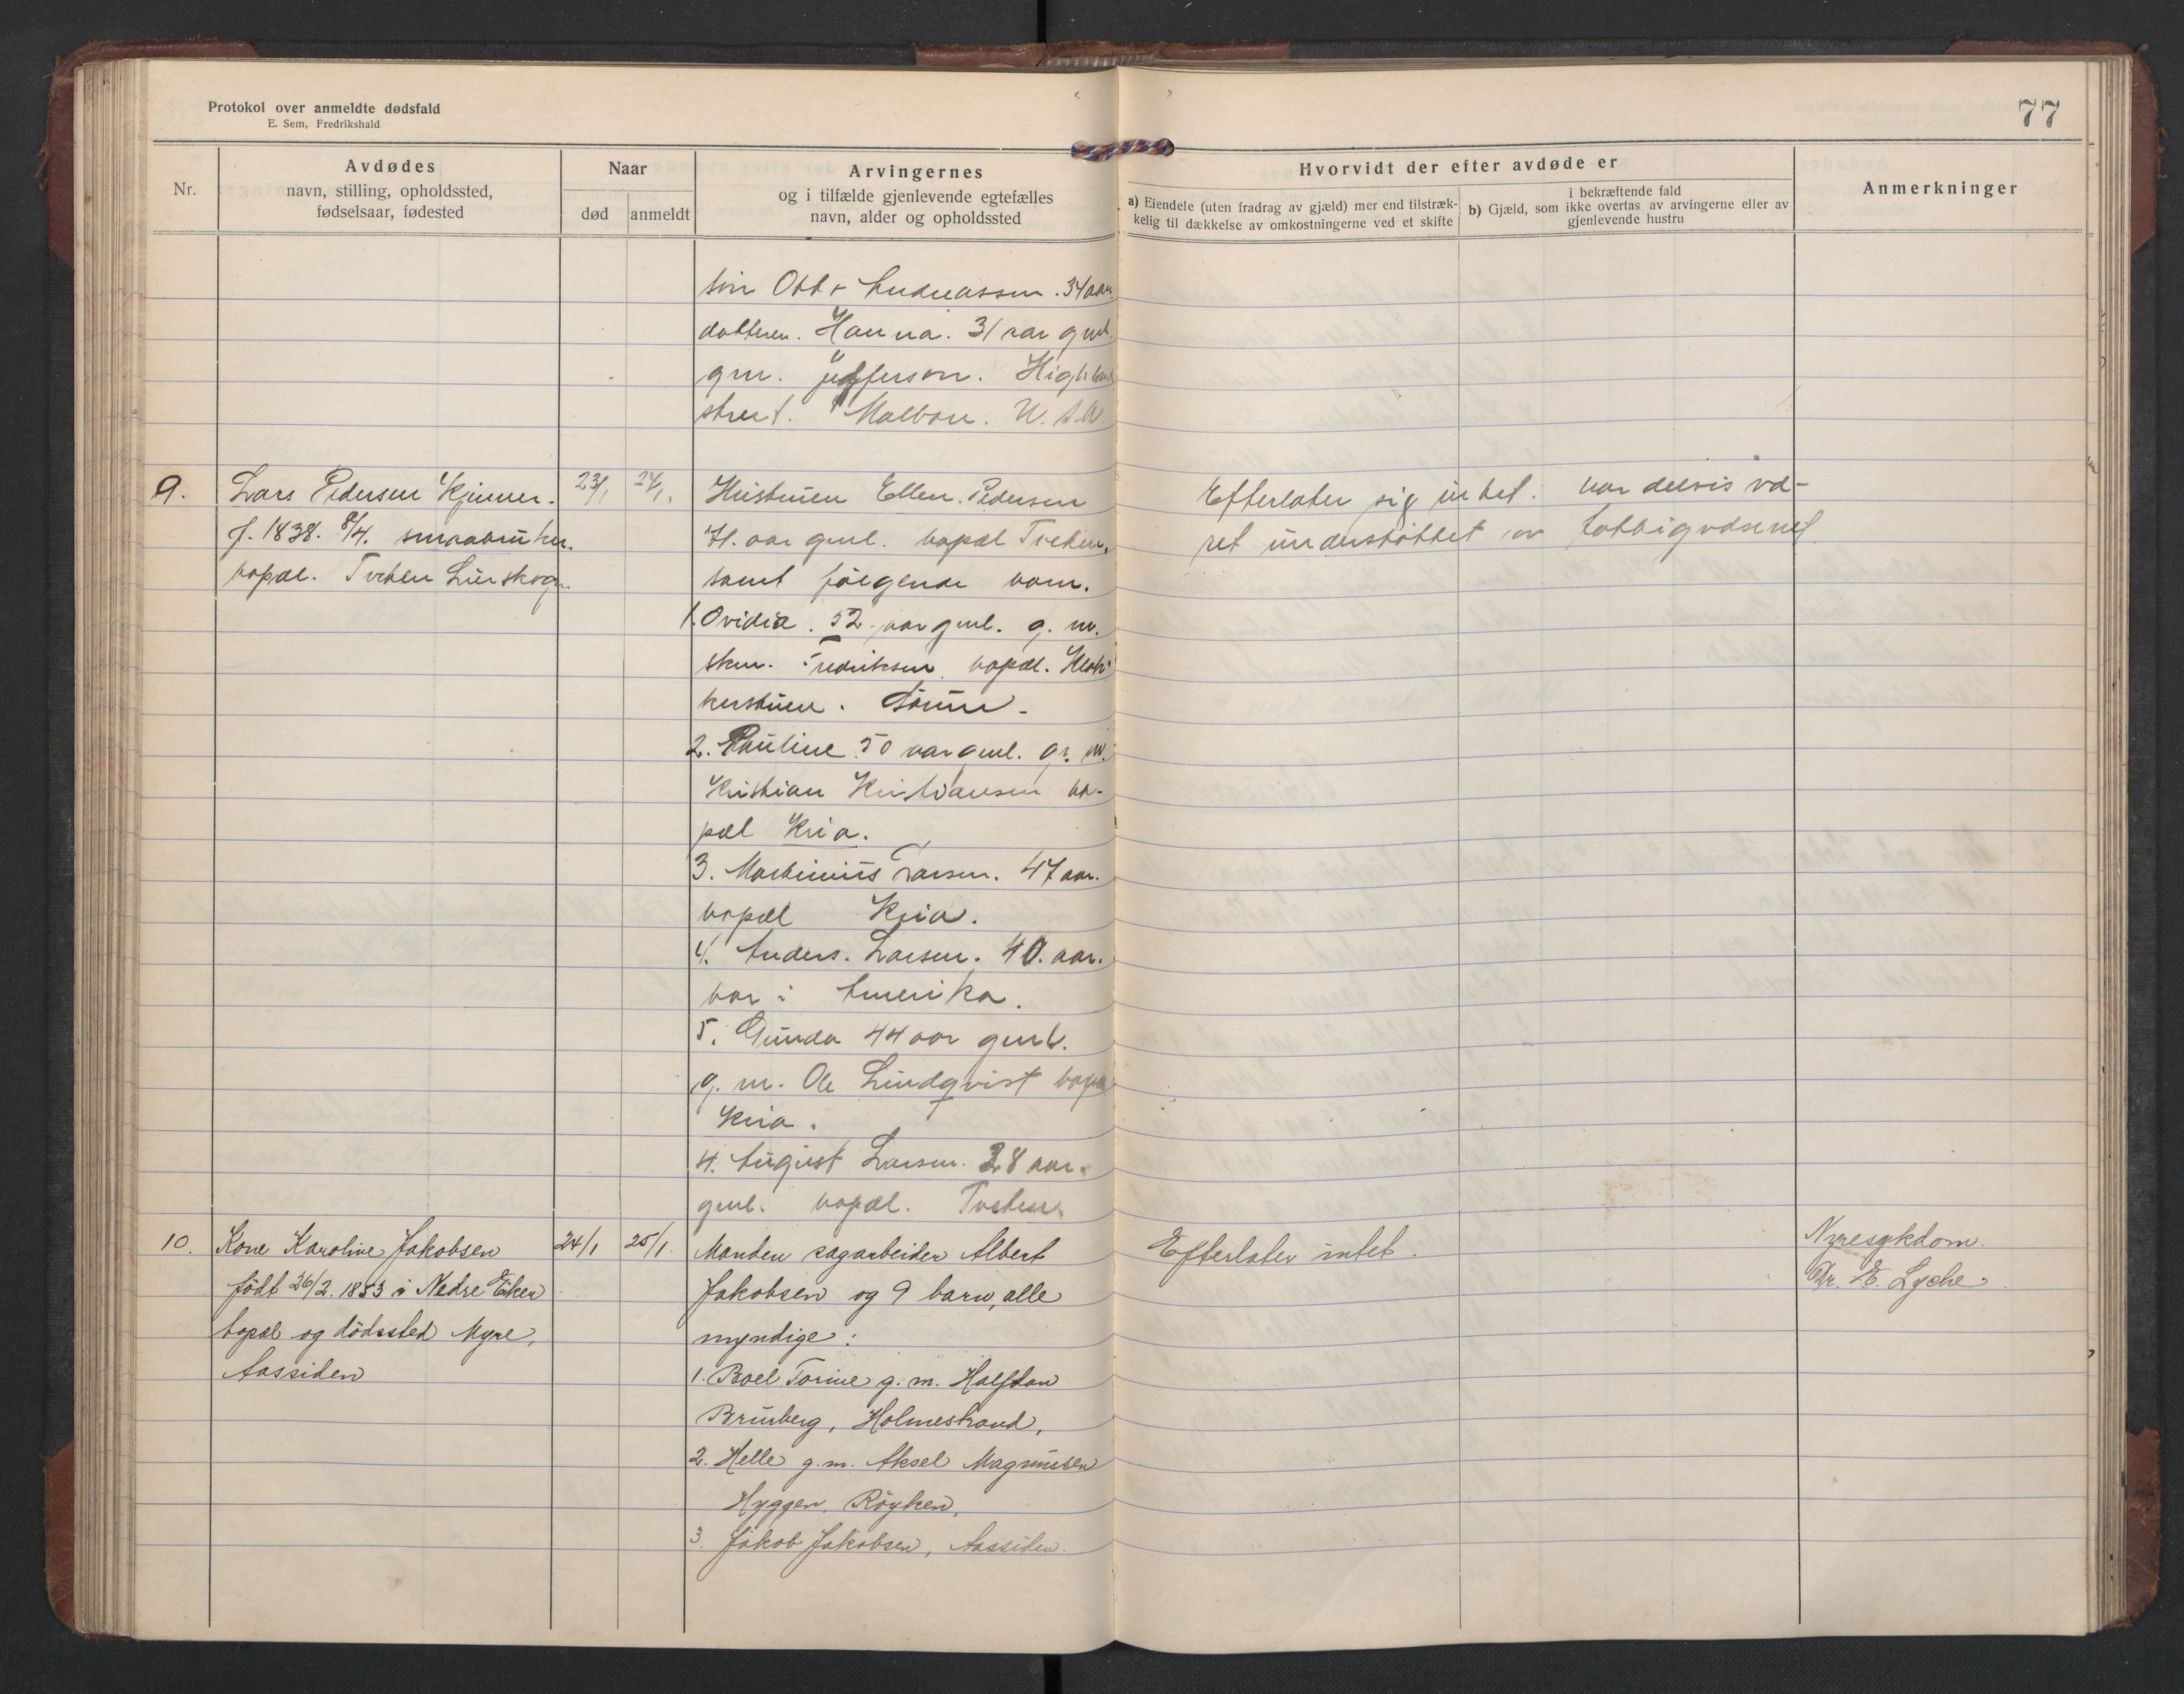 Protokol over anmeldte dødsfald
E. Sem, Fredrikshald
77
Nr.
Avdødes
navn, stilling, opholdssted,
fødselsaar, fødested
Naar
død
anmeldt
Arvingernes
og i tilfælde gjenlevende egtefælles
navn, alder og opholdssted
Hvorvidt der efter avdøde er
a) Eiendele (uten fradrag av gjæld) mer end tilstræk-
kelig til dækkelse av omkostningerne ved et skifte
i bekræftende fald
b) Gjæld, som ikke overtas av arvingerne eller av
gjenlevende hustru
Anmerkninger
søn Otto Andreassen. 34 aar
datteren. Hanna. 31 aar gml.
gm. Jefferson. Highland
street. U.S.A.
9.
Lars Pedersen
f. 1838. 8/4. smaabruker.
bopæl. Tveten Lierskogn.
23/1
24/1.
Hustruen Ellen. Pedersen
71. aar gml. bopæl Tveten,
samt følgende barn.
1. Ovidia. 52 aar gml. g. m.
Fredriksen bopæl. Klok-
kerstuen.
2. Pauline 50 aar gml. g. m.
Kristian Kristiansen bo-
pæl Kria.
3. Martinius Larsen. 47 aar.
bopæl Kria.
4. Anders. Larsen. 40. aar.
bor i Amerika.
5. Gunda 44 aar gml.
g. m. Ole Lindqvist bopæl
Kria.
4. August Larsen. 38 aar.
gml. bopæl. Tveten.
Efterlater sig intet. har delvis væ-
ret understøttet av fattigvæsenet
10.
Kone Karoline Jakobsen
født 26/2. 1853 i Nedre Eiker
bopæl og dödssted Myre,
Aassiden
24/1
25/1.
Manden sagarbeider Albert
Jakobsen og 9 barn, alle
myndige:
1. Boel Torine g. m. Halfdan
Brunberg, Holmestrand,
2. Helle g. m. Aksel Magnussen
Hyggen, Röyken,
3. Jakob Jakobsen, Aassiden.
Efterlater intet.
Nyresykdom.
Dr. E. Lyche.